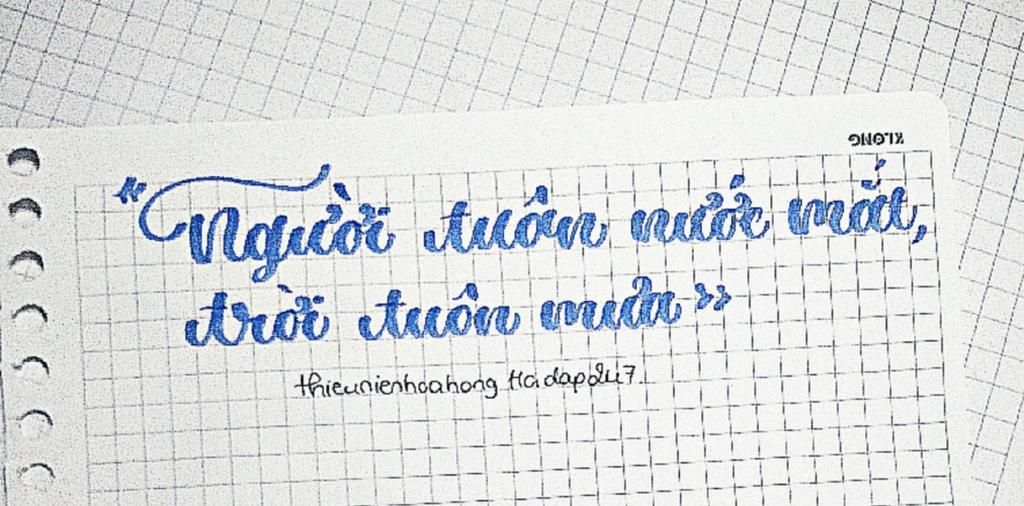 KLONG
“Người tuôn nước mắt,
trời tuôn mưa”
thieunienhoahong Hoidap247